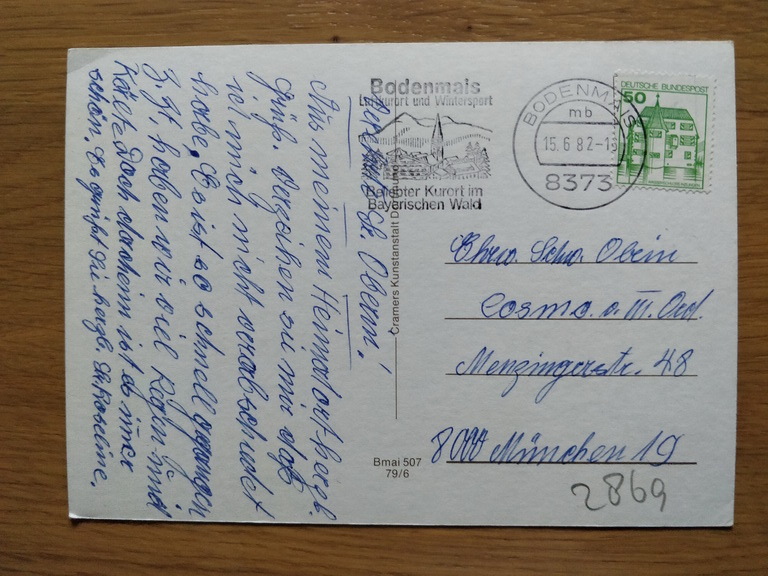 Bodenmais
Luftkurort und Wintersport
Beliebter Kurort im
Bayerischen Wald
BODENMAIS
mb
15.6.82-1
8373
DEUTSCHE BUNDESPOST
50
Oberin!
Aus meinem Heimatort herzl.
Grüße. Verzeihen sie mir daß
ich mich nicht verabschiedet
habe. Es ist so schnell gegangen
Z. Zt. haben wir viel Regen und
Kälte. Doch daheim ist es immer
schön. Es grüßt Sie herzl.
Cramers Kunstanstalt
Bmai 507
79/6
Ehrw. Schw. Oberin
Cosma v. III. Ord.
Menzingerstr. 48
8000 München 19
2869